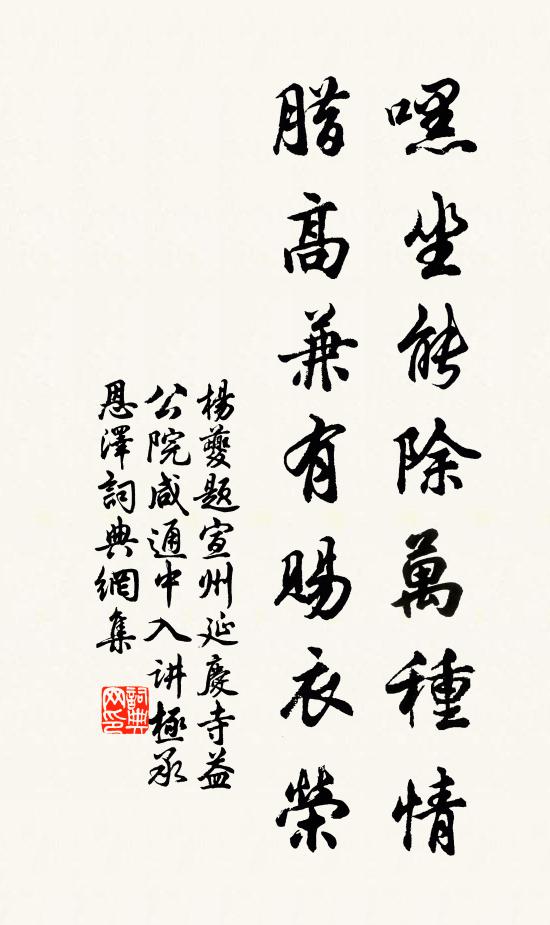 嘿坐能除萬種情
腊高兼有賜衣榮
楊夔題宣州延慶寺益
公院咸通中入讲極承
恩澤詞典網集
詞典网印